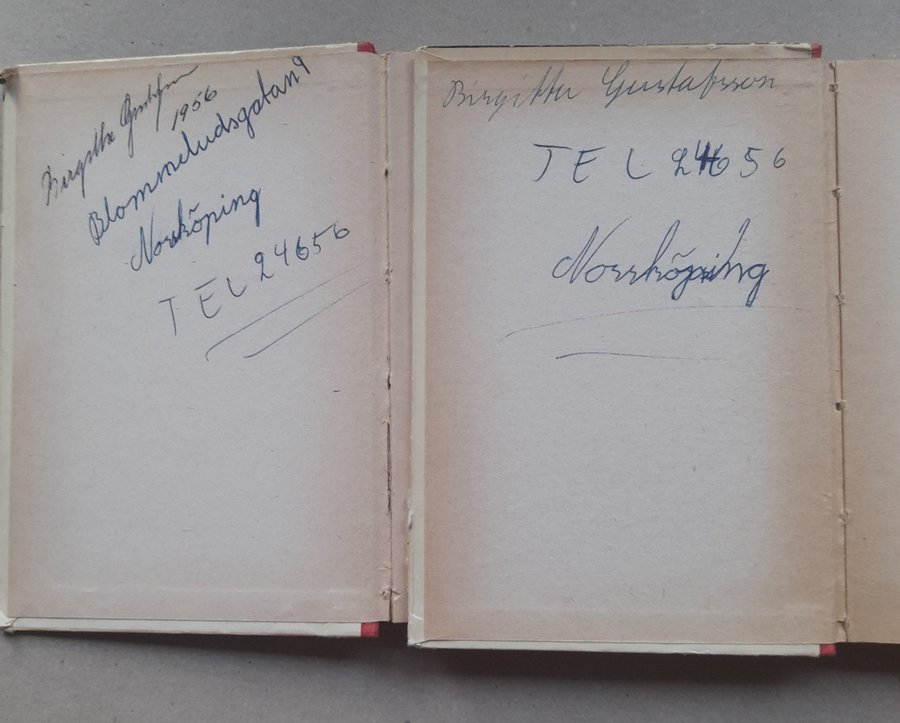 Birgitta Gustafsson
1956
Blommeludsgatan 9
Norrköping
TEL 24656
Birgitta Gustafsson
TEL 24656
Norrköping